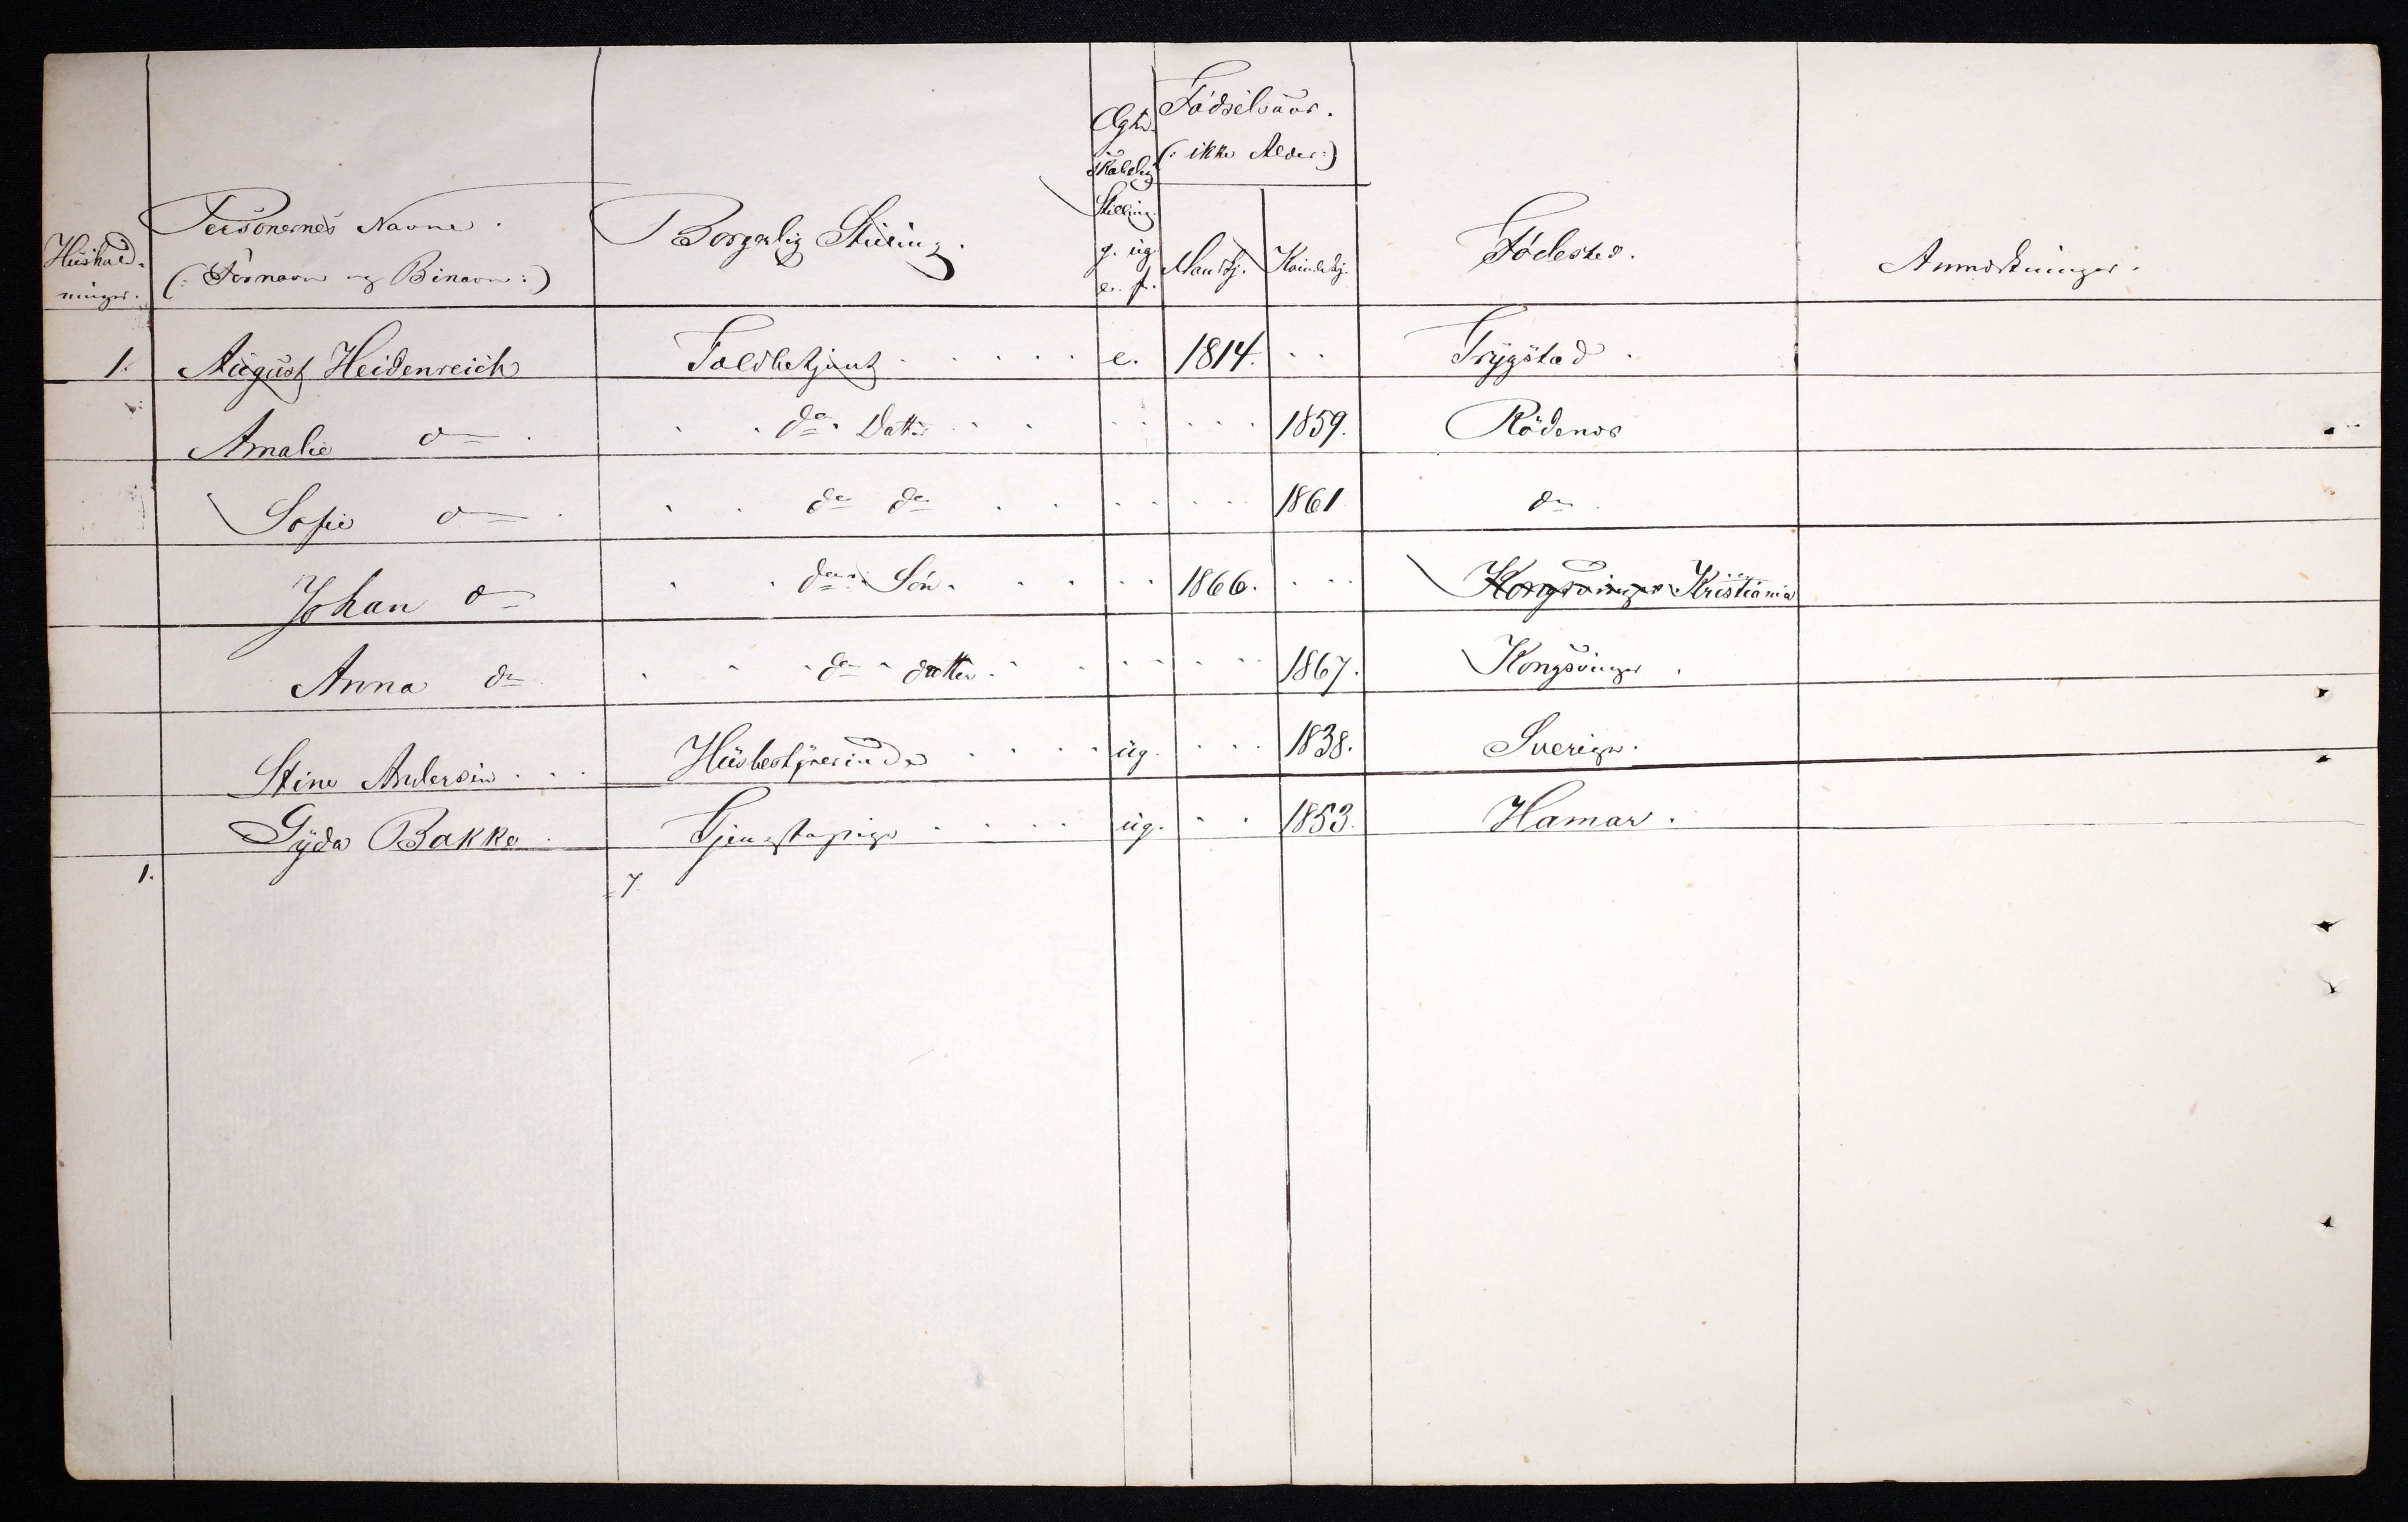 Hushold-
ninger.
Personernes Navne.
(: Fornavn og Binavn :)
Borgerlig Stilling.
Ægte-
skabelig
Stilling.
g. ug.
e. f.
Fødselsaar.
(: ikke Alder :)
Mandkj. Kvindekj.
Fødested.
Anmærkninger.
1. August Heidenreich Toldbetjent . . . . . e. 1814. . . Trygstad.
Amalie do . . . do. Datter . . . . . . . . 1859. Rödenes
Sofie do . . . do do . . . . . . . 1861 do.
Johan do . . do. Sön. . . . . . 1866. . . . Kongsvinger Kristiania
Anna do . . . do datter. . . . . . . . 1867. Kongsvinger.
Stine Andersen . . . Husbestyrerinde . . . . ug. . . . 1838. Sverige.
Gyda Bakke . Tjenestepige . . . . ug. . . 1853. Hamar.
1. 7